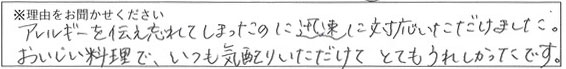 ※理由をお聞かせください
アレルギーを伝え忘れてしまったのに迅速に対応いただけました。
おいしい料理で、いつも気配りいただけて とてもうれしかったです。